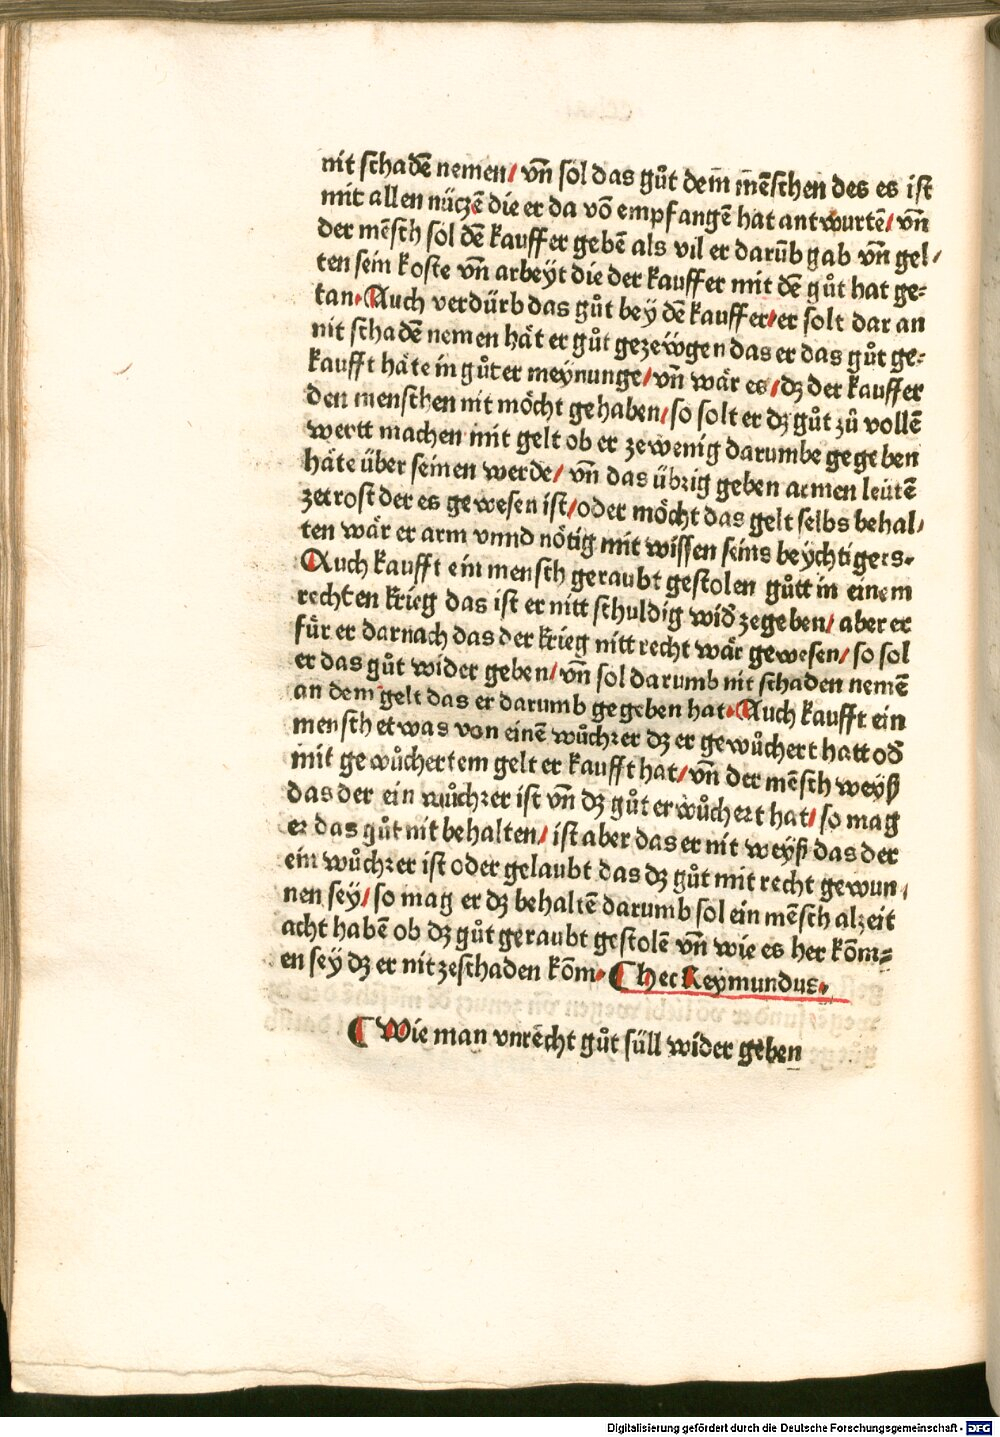 nit schadē nemen/ vn̄ sol das gůt dem mēschen des es ist
mit allen nüczē die er da vō empfangē hat antwurtē/ vn̄
der mēsch sol dē kauffer gebē als vil er darūb gab vn̄ gel/
ten sein koste vn̄ arbeyt die der kauffer mit dē gůt hat ge⸗
tan· Auch verdürb das gůt bey dē kauffer/ er solt dar an
nit schadē nemen hät er gůt gezeẅgen das er das gůt ge⸗
kaufft häte in gůter meynunge/ vn̄ wär es/ dz der kauffer
den menschen nit möcht gehaben/ so solt er dz gůt zů vollē
wertt machen mit gelt ob er zewenig darumbe gegeben
häte über seinen werde/ vn̄ das übꝛig geben armen leütē
zetrost der es gewesen ist/ oder möcht das gelt selbs behal/
ten wär er arm vnnd nötig mit wissen seins beychtigers·
Auch kaufft ein mensch geraubt gestolen gůtt in einem
rechten krieg das ist er nitt schuldig wid̄ zegeben/ aber er
für er darnach das der krieg nitt recht wär gewesen/ so sol
er das gůt wider geben/ vn̄ sol darumb nit schaden nemē
an dem gelt das er darumb gegeben hat· Auch kaufft ein
mensch etwas von einē wůchꝛer dz er gewůchert hatt od̄
mit gewůchertem gelt er kaufft hat/ vn̄ der mēsch weyß
das der ein wůchꝛer ist vn̄ dz gůt erwůchert hat/ so mag
er das gůt nit behalten/ ist aber das er nit weyß das der
ein wůchꝛer ist oder gelaubt das dz gůt mit recht gewun/
nen sey/ so mag er dz behaltē darumb sol ein mēsch alzeit
acht habē ob dz gůt geraubt gestolē vn̄ wie es her kōm⸗
en sey dz er nit zeschaden kōm· ¶ hec Reymundus·
¶ Wie man vnrecht gůt süll wider geben
Digitalisierung gefördert durch die Deutsche Forschungsgemeinschaft - DFG